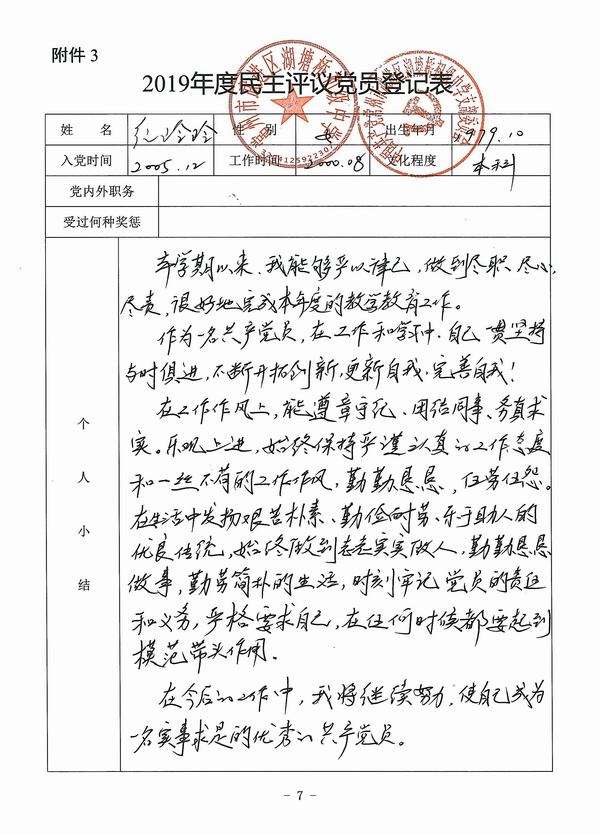 附件3
2019年度民主评议党员登记表
姓 名 玲玲 性 别 女 出生年月 1979.10
入党时间 2005.12 工作时间 2000.08 文化程度 本科
党内外职务
受过何种奖惩
个人小结
本学期以来，我能够严以律己，做到尽职、尽心、
尽责，很好地完成本年度的教学教育工作。
作为一名共产党员，在工作和学习中，自己一贯坚持
与时俱进，不断开拓创新，更新自我，完善自我！
在工作作风上，能遵章守纪、团结同事、务真求
实。乐观上进，始终保持严谨认真的工作态度
和一丝不苟的工作作风，勤勤恳恳，任劳任怨。
在生活中发扬艰苦朴素、勤俭耐劳、乐于助人的
优良传统，始终做到老老实实做人，勤勤恳恳
做事，勤劳简朴的生活，时刻牢记党员的责任
和义务，严格要求自己，在任何时候都要起到
模范带头作用。
在今后的工作中，我将继续努力，使自己成为
一名实事求是的优秀的共产党员。
- 7 -